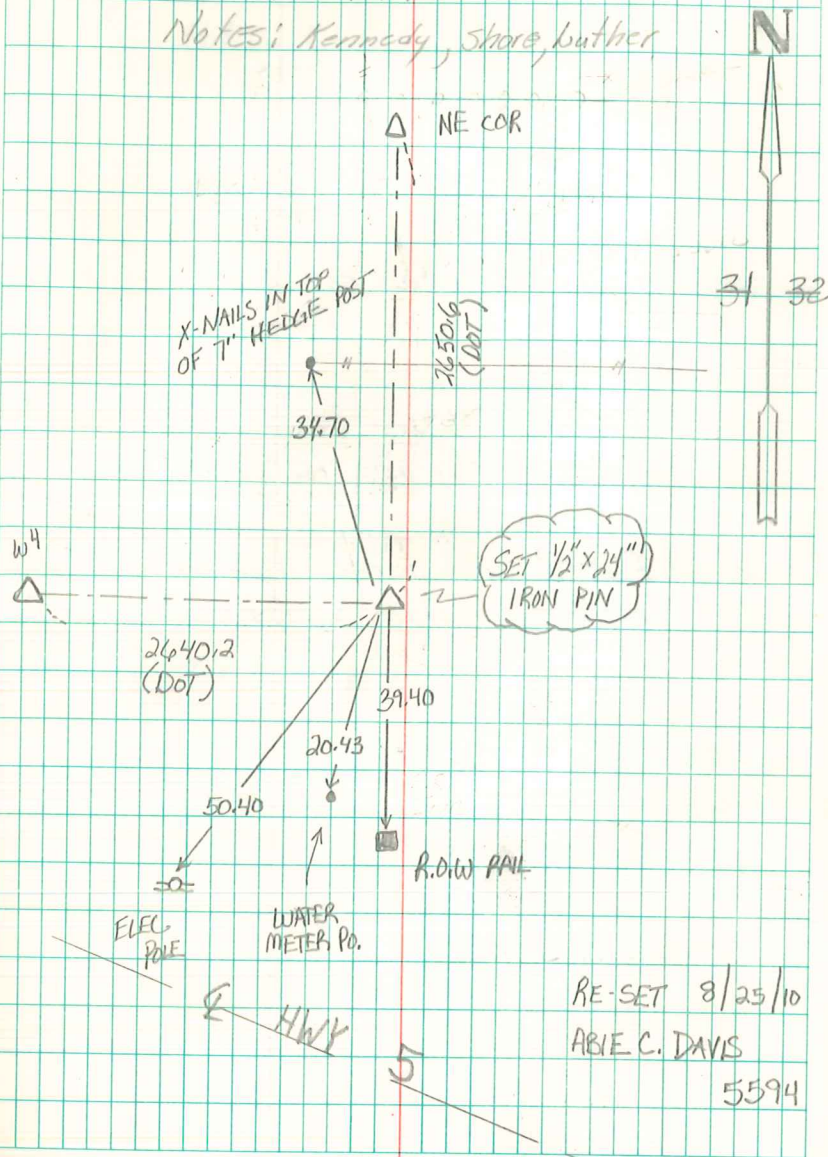 Notes: Kennedy, Shore, Luther
N
NE COR
31 32
X-NAILS IN TOP
OF 7" HEDGE POST
2650.6
(DOT)
34.70
W4
SET 1/2" X 24"
IRON PIN
2640.2
(DOT)
39.40
20.43
50.40
R.O.W RAIL
ELEC
POLE
WATER
METER PO.
℄ HWY 5
RE-SET 8/25/10
ABIE C. DAVIS
5594